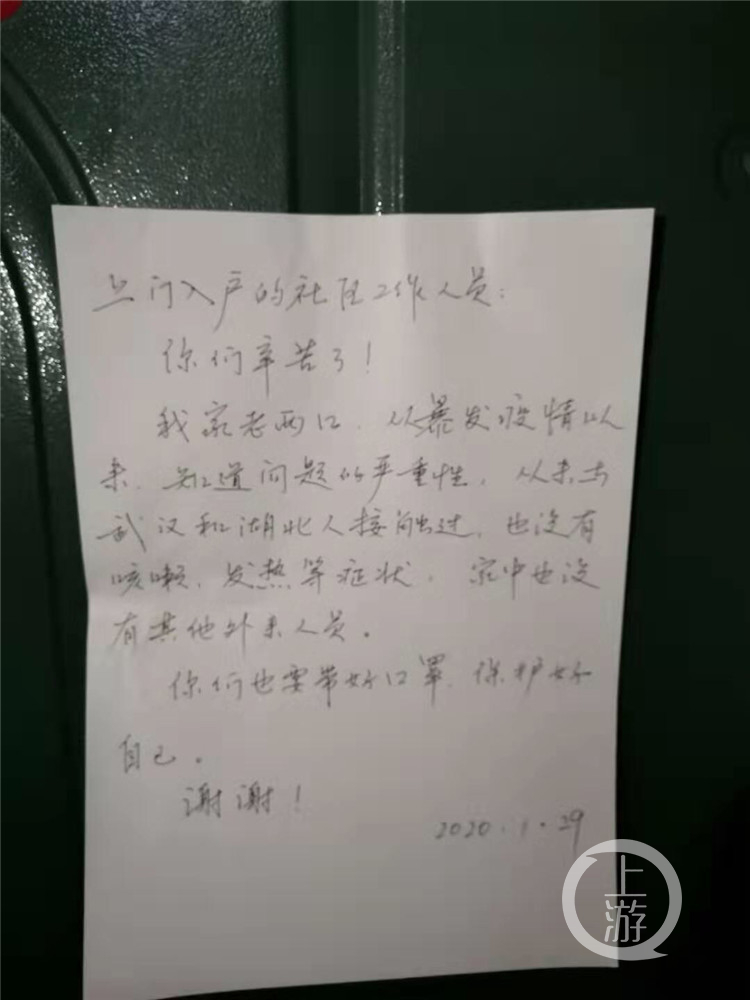 上门入户的社区工作人员：
你们辛苦了！
我家老两口，从暴发疫情以
来，知道问题的严重性，从未与
武汉和湖北人接触过，也没有
咳嗽、发热等症状，家中也没
有其他外来人员。
你们也要带好口罩，保护好
自己。
谢谢！
2020.1.29
上游